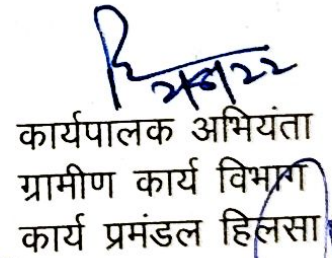 कार्यपालक अभियंता
ग्रामीण कार्य विभाग
कार्य प्रमंडल हिलसा